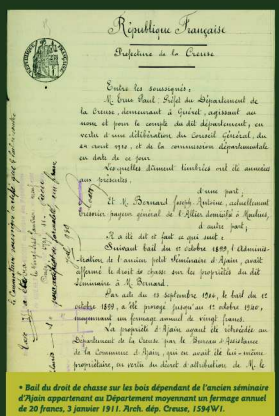 République Française
Préfecture de la Creuse
Entre les soussignés,
M. Paul, Préfet du Département de
la Creuse, demeurant à Guéret, agissant au
nom et pour le compte du dit département, en
vertu d'une délibération du Conseil Général, du
août 1910, et de la commission départementale
en date de ce jour
Lesquelles dûment timbrées ont été annexées
aux présentes.
d'une part;
Et M. Bernard Joseph Antoine, actuellement
Trésorier payeur général de l'Allier domicilié à Moulins,
d'autre part;
Il a été dit et fait ce qui suit:
Suivant bail du 1er octobre 1899, l'Adminis-
tration de l'ancien petit Séminaire d'Ajain, avait
affermé le droit de chasse sur les propriétés du dit
séminaire à M. Bernard.
Par acte du 13 septembre 1906, le bail du 1er
octobre 1899, a été prorogé jusqu'au 1er octobre 1910,
moyennant un fermage annuel de vingt francs.
La propriété d'Ajain ayant été rétrocédée au
Département de la Creuse par le Bureau d'Assistance
de la Commune d'Ajain, qui en avait été lui-même
propriétaire, en vertu du décret d'attribution de M. le
• Bail du droit de chasse sur les bois dépendant de l'ancien séminaire
d'Ajain appartenant au Département moyennant un fermage annuel
de 20 francs, 3 janvier 1911. Arch. dép. Creuse, 1594W1.